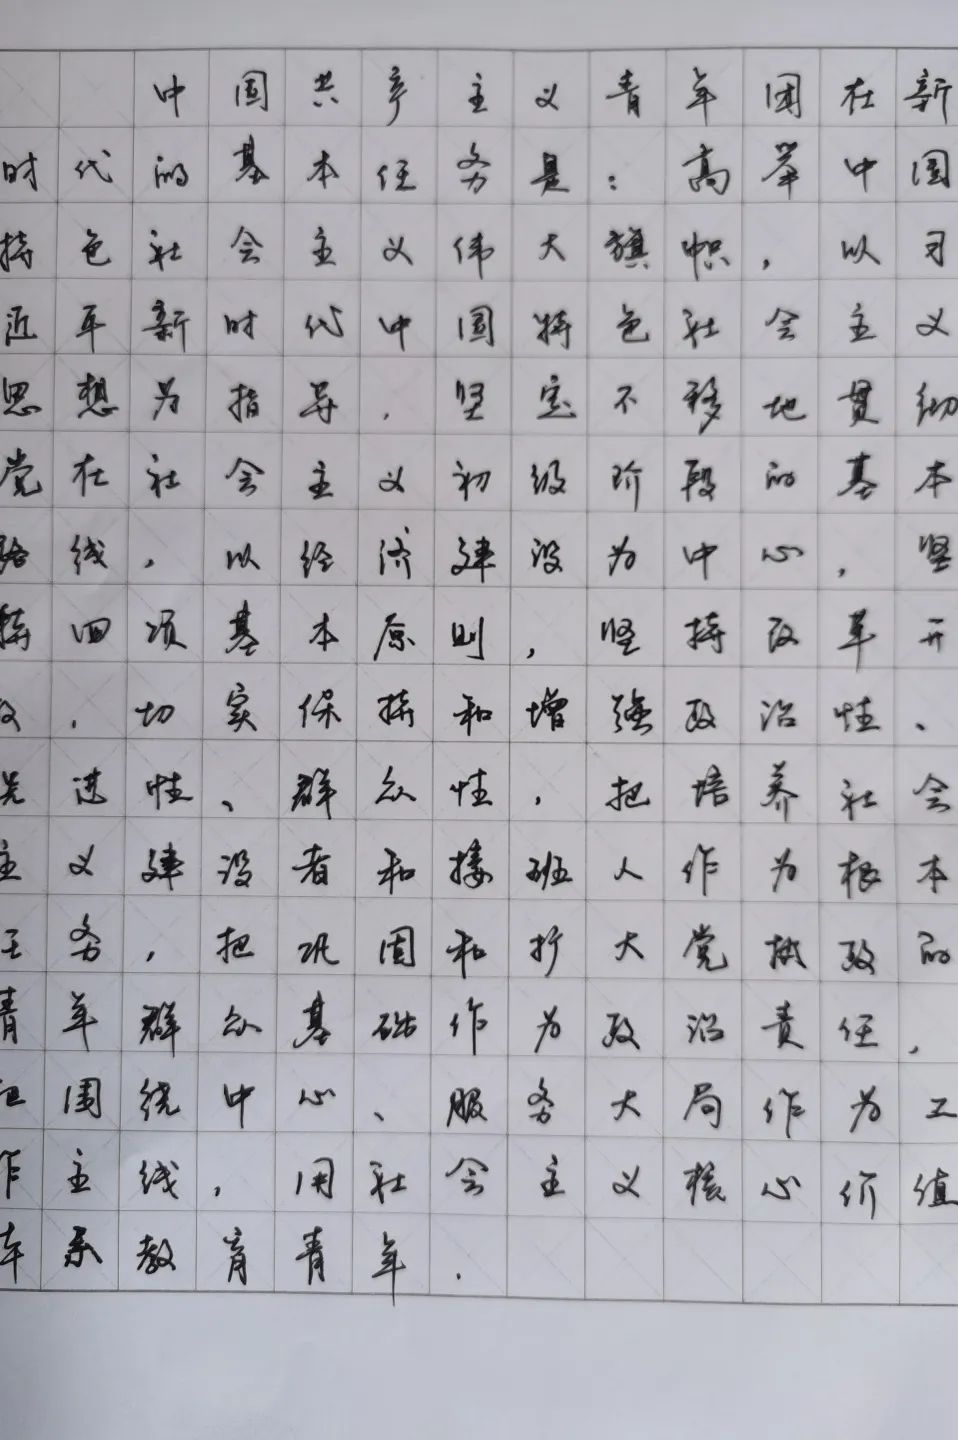 中国共产主义青年团在新
时代的基本任务是：高举中国
特色社会主义伟大旗帜，以习
近平新时代中国特色社会主义
思想为指导，坚定不移地贯彻
党在社会主义初级阶段的基本
路线，以经济建设为中心，坚
持四项基本原则，坚持改革开
放，切实保持和增强政治性、
先进性、群众性，把培养社会
主义建设者和接班人作为根本
任务，把巩固和扩大党执政的
青年群众基础作为政治责任，
把围绕中心、服务大局作为工
作主线，用社会主义核心价值
体系教育青年.